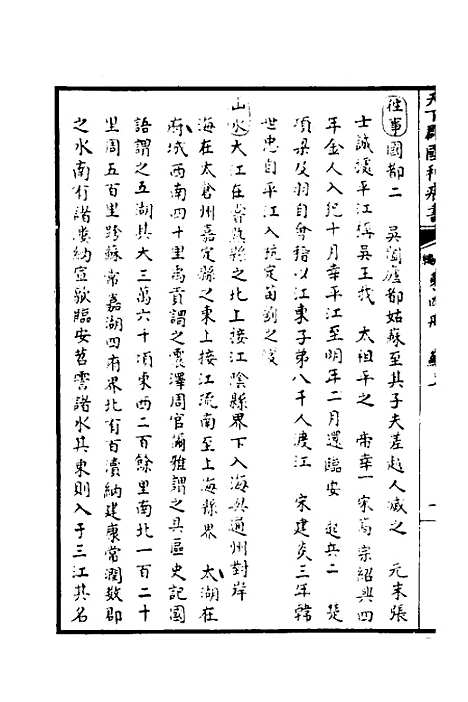 天下郡國利病書 編 第四册 蘇上 一
往事 國都二 吳闔廬都姑蘇至其子夫差越人滅之 元末張
士誠據平江稱吳王我 太祖平之 帝幸一宋高宗紹興四
年金人入犯十月幸平江至明年二月還臨安 起兵二 楚
項梁及羽自會稽以江東子弟八千人渡江 宋建炎三年韓
世忠自平江入杭定苗劉之變
山水 大江在常熟縣之北上接江陰縣界下入海與通州對岸
海在太倉州嘉定縣之東上接江流南至上海縣界 太湖在
府城西南四十里禹貢謂之震澤周官爾雅謂之具區史記國
語謂之五湖其大三萬六千頃東西二百餘里南北一百二十
里周五百里跨蘇常嘉湖四府界北有百瀆納建康常潤數郡
之水南有諸漊納宣歙臨安苕霅諸水其東則入于三江其名